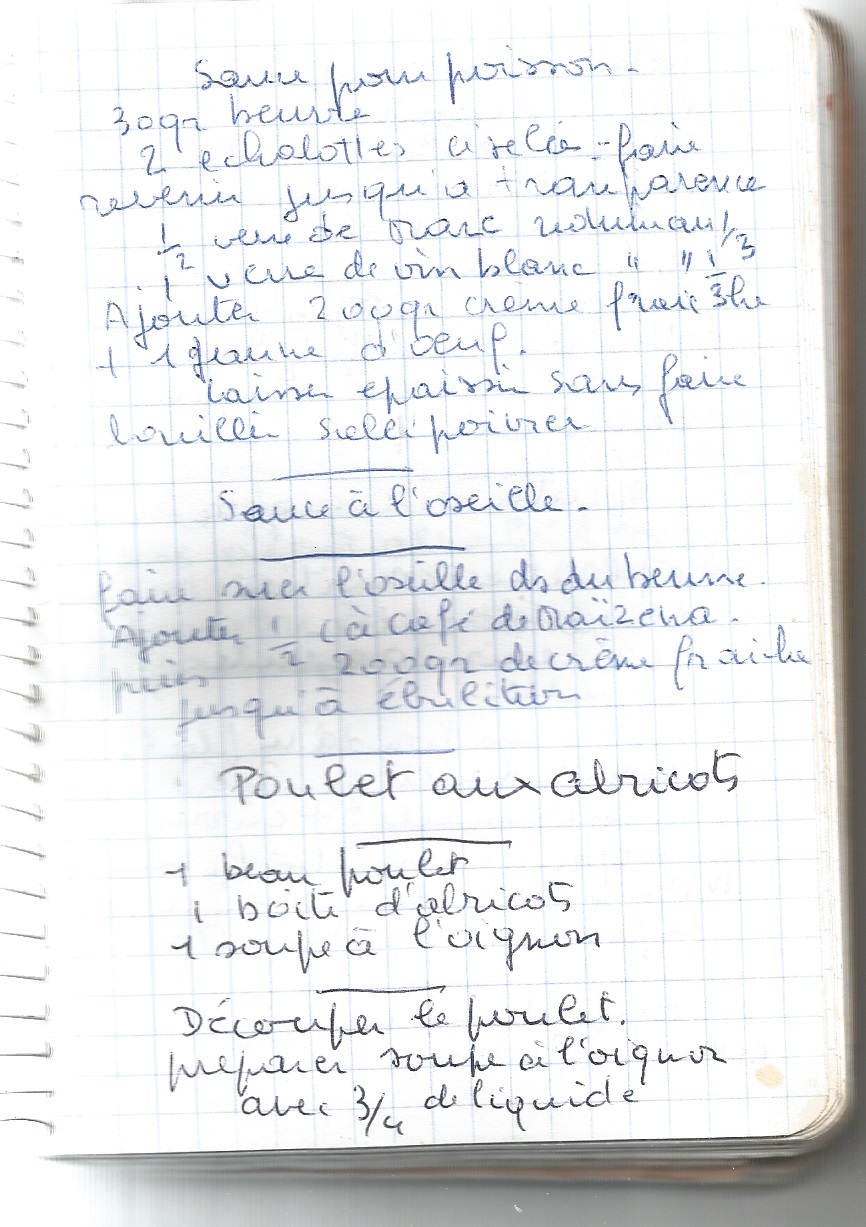 Sauce pour poisson.
30gr beurre
2 echalottes ciselées - faire
revenir jusqu'a transparence
1/2 verre de marc 1/3
1 verre de vin blanc " " 1/3
Ajouter 200gr creme fraiche
+ 1 jeaune d'oeuf.
laisser epaissir sans faire
bouillir saler poivrer
Sauce à l'oseille.
faire suer l'oseille ds du beurre.
Ajouter 1/2 c à café de Maïzena.
puis 200gr de crême fraiche
jusqu'à ébulition
Poulet aux abricots
1 beau poulet
1 boite d'abricots
1 soupe à l'oignon
Découper le poulet.
préparer soupe à l'oignon
avec 3/4 de liquide